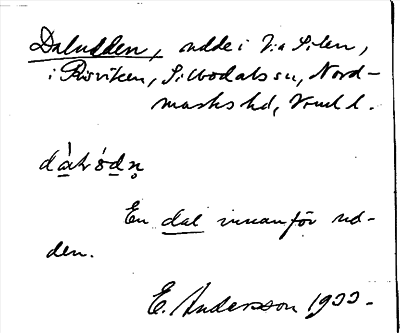 Daludden, udde i V:a Silen,
i Risviken, Silbodals sn, Nord-
marks hd, Vrml l.
En dal innanför ud-
den.
E. Andersson 1933.